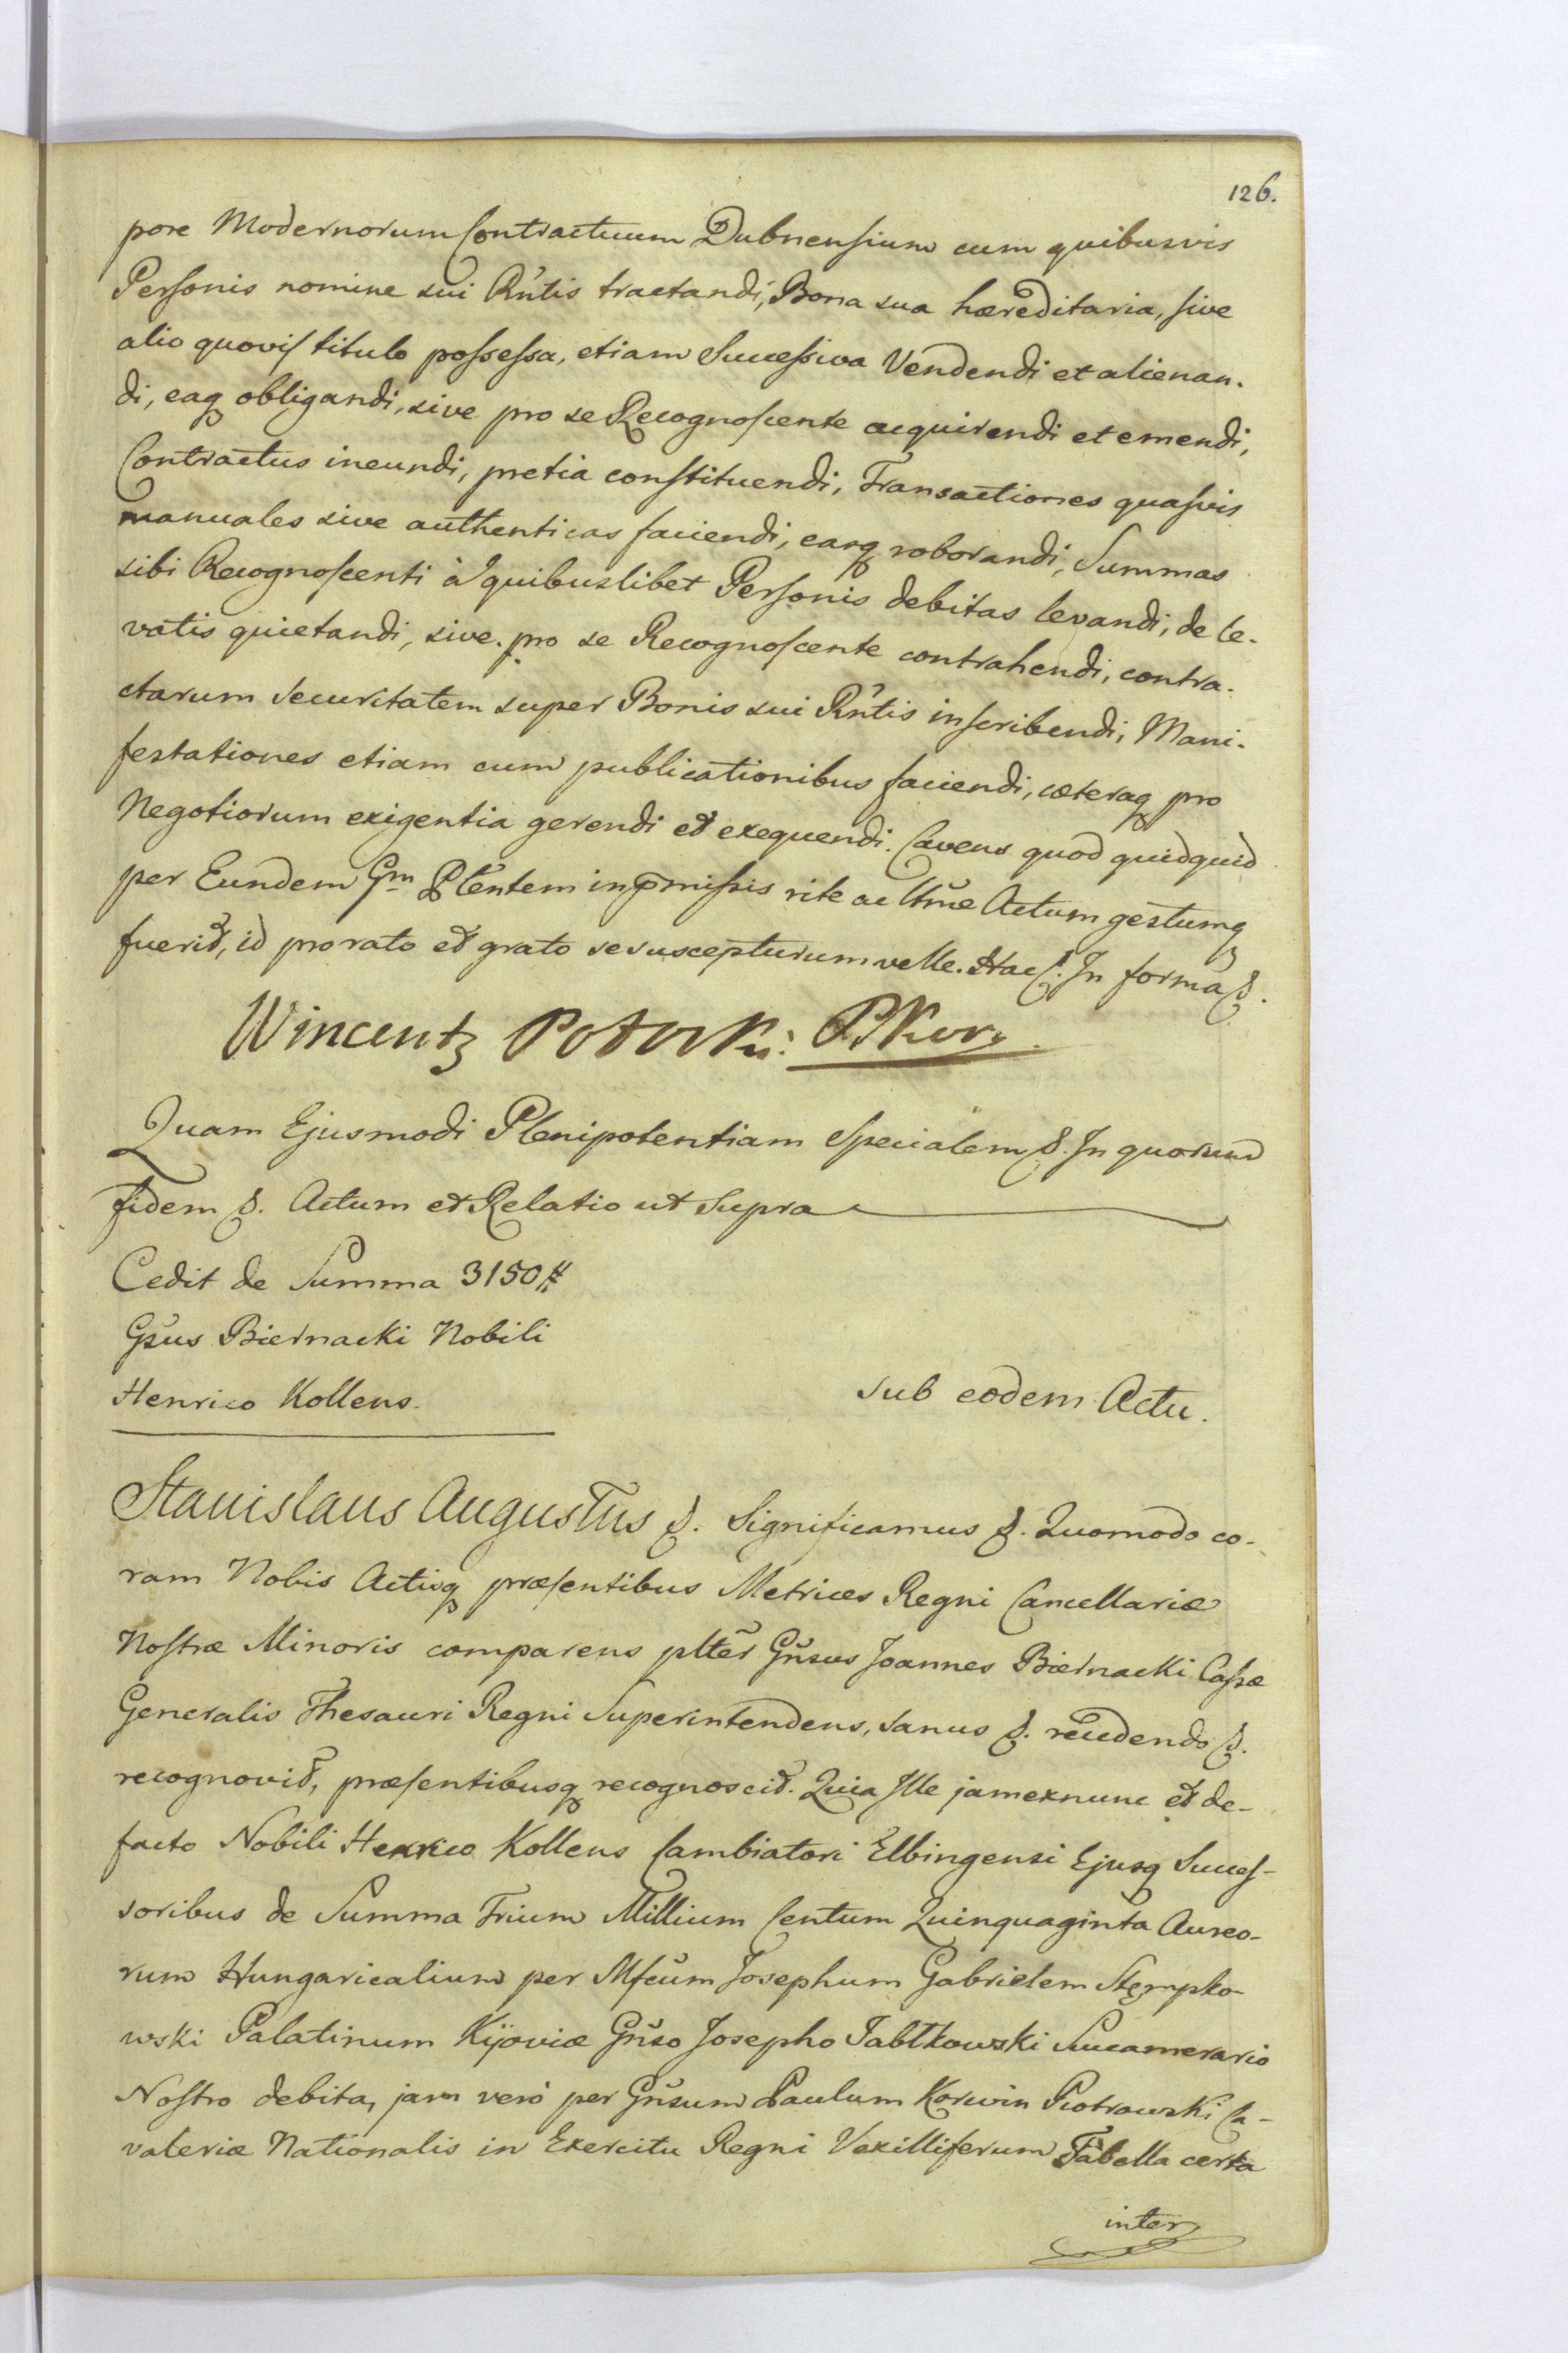 126.
pore Modernorum Contractuum Dubnensium cum quibusvis
Personis nomine sui Rñtis tractandi, Bona sua hæreditaria, sive
alio quovis titulo possessa, etiam Successiva Vendendi et alienan-
di, eaq obligandi, sive pro se Recognoscente acquirendi et emendi,
Contractus ineundi, pretia constituendi, Transactiones quasvis
manuales sive authenticas faciendi, easq roborandi, Summas
sibi Recognoscenti à quibuslibet Personis debitas levandi, de le-
vatis quietandi, sive pro se Recognoscente contrahendi, contra-
ctarum securitatem super Bonis sui Rñtis inscribendi, Mani-
festationes etiam cum publicationibus faciendi, cæteraq pro
Negotiorum exigentia gerendi et exequendi. Cavens quod quidquid
per Eundem Gm Pltentem in pmissis rite ac ltme Actum gestumq
fuerit, id pro rato et grato se suscepturum velle. Hac &. In forma &.
Wincenty Potocki: PKor.
Quam Ejusmodi Plenipotentiam Specialem &. In quorum
fidem &. Actum et Relatio ut Supra
Cedit de Summa 3150 #
Gsus Biernacki Nobili
Henrico Kollens.
Sub eodem Actu.
Stanislaus Augustus &. Significamus &. Quomodo co-
ram Nobis Actisq præsentibus Metrices Regni Cancellariæ
Nostræ Minoris comparens plter Gñsus Joannes Biernacki Cassæ
Generalis Thesauri Regni Superintendens, sanus &. recedendo &.
recognovit, præsentibusq recognoscit. Quia Ille jam ex nunc et de-
facto Nobili Henrico Kollens Cambiatori Elbingensi Ejusq Succes-
soribus de Summa Trium Millium Centum Quinquaginta Aureo-
rum Hungaricalium per Mfcum Josephum Gabrielem Stęmpko-
wski Palatinum Kijoviæ Gñso Josepho Jabłkowski Succamerario
Nostro debita, jam verò per Gñsum Paulum Korwin Piotrowski Ca-
valeriæ Nationalis in Exercitu Regni Vexilliferum Tabella certa
inter